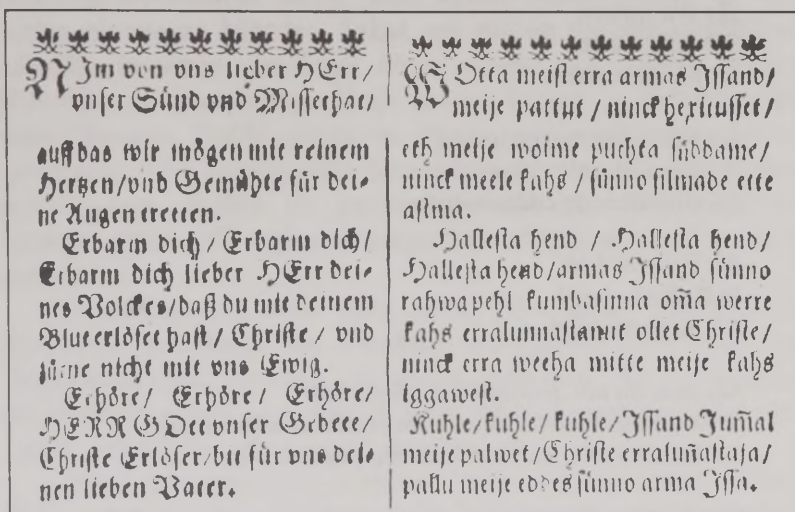 NIm von vns lieber HErr/
vnser Sünd vnd Missethat/
auff das wir mögen mit reinem
Hertzen/vnd Gemühte für dei-
ne Augen tretten.
Erbarm dich/ Erbarm dich/
Erbarm dich lieber HErr dei-
nes Volckes/daß du mit deinem
Blut erlöset hast/ Christe/ vnd
zürne nicht mit vns Ewig.
Erhöre/ Erhöre/ Erhöre/
HERR GOtt vnser Gebete/
Christe Erlöser/bit für vns dei-
nen lieben Vater.
WOtta meist erra armas Issand/
meije pattut / ninck hexitusset/
eth meije woime puchta süddame/
ninck meele kahs / sünno silmade ette
astma.
Hallesta hend / Hallesta hend/
Hallesta hend/armas Issand sünno
rahwapehl kumbasinna om̃a werre
kahs erralunnastanut ollet Christe/
ninck erra weeha mitte meije kahs
iggawest.
Kuhle/kuhle/kuhle/Issand Jum̃al
meije palwet/Christe erralun̄astaja/
pallu meije eddes sünno arma Issa.